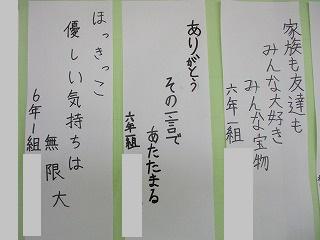 家族も友達も
みんな大好き
みんな宝物
六年一組
ありがとう
その一言で
あたたまる
六年一組
ほっきっこ
優しい気持ちは
無限大
6年1組